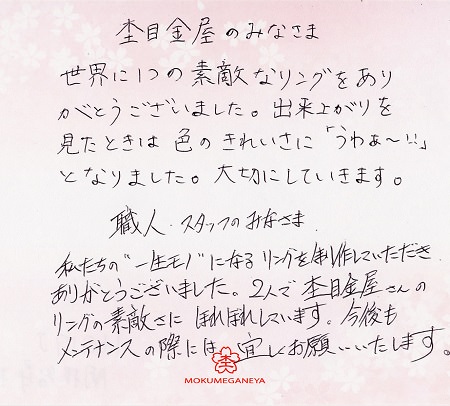 杢目金屋のみなさま
世界に1つの素敵なリングをあり
がとうございました。出来上がりを
見たときは色のきれいさに「うわぁ〜!!」
となりました。大切にしていきます。
職人・スタッフのみなさま
私たちの"一生モノ"になるリングを制作していただき
ありがとうございました。2人で杢目金屋さんの
リングの素敵さにほれぼれしています。今後も
メンテナンスの際には宜しくお願いいたします。
MOKUMEGANEYA